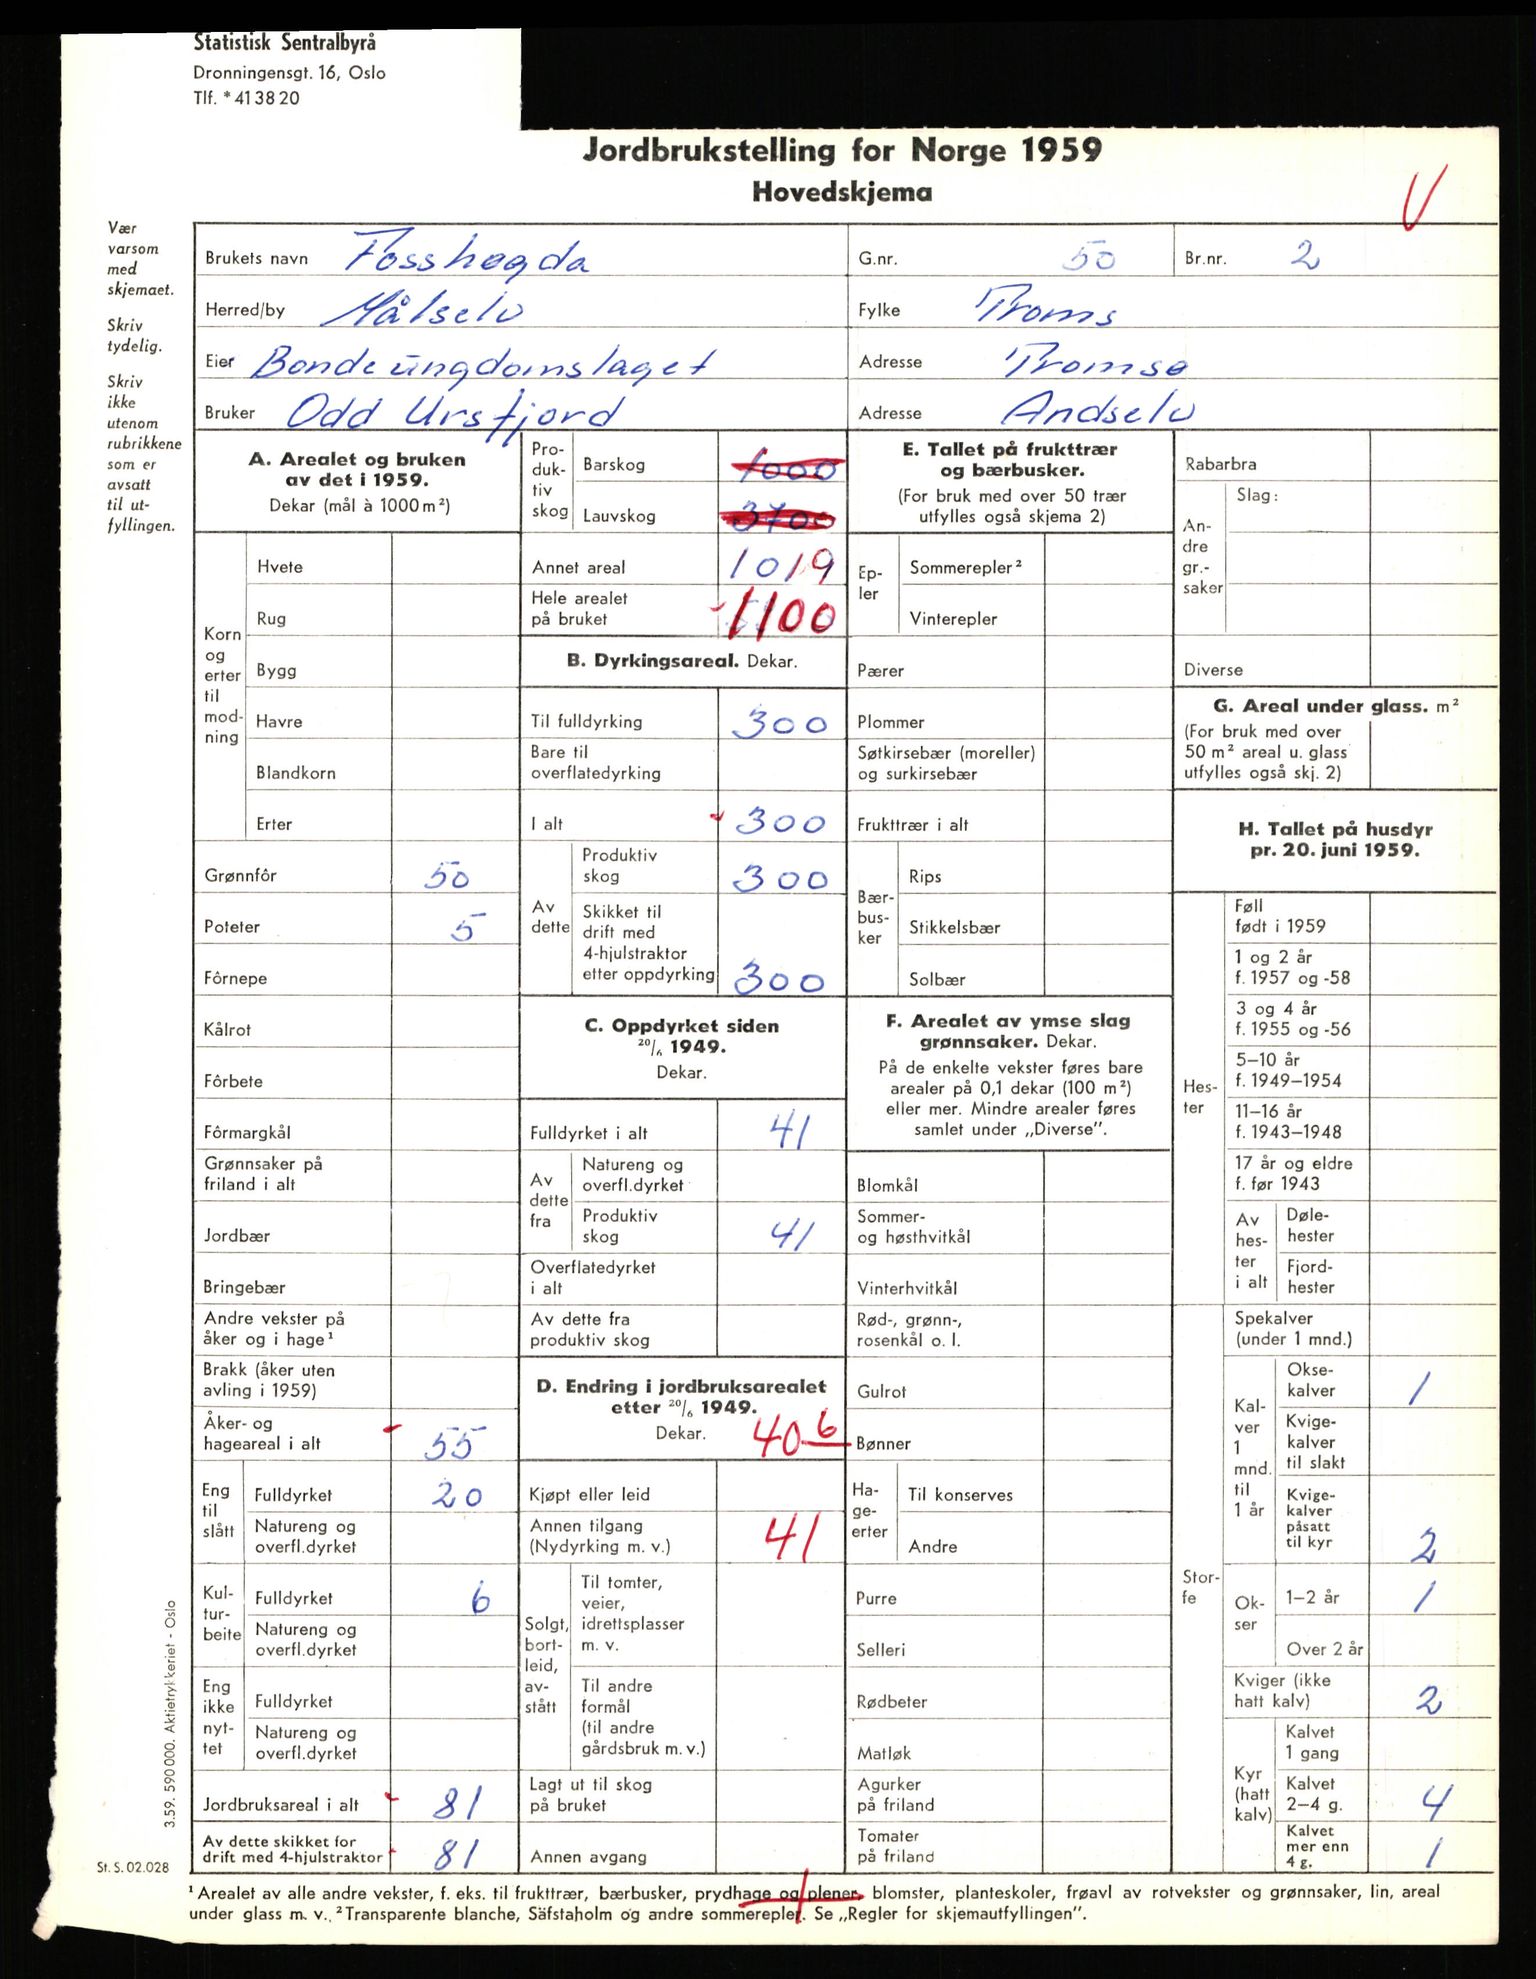 Statistisk Sentralbyrå
Dronningensgt. 16, Oslo
Tlf. * 41 38 20
Jordbrukstelling for Norge 1959
Hovedskjema
V
Vær
varsom
med
skjemaet.
Skriv
tydelig.
Skriv
ikke
utenom
rubrikkene
som er
avsatt
til ut-
fyllingen.
Brukets navn Fosshøgda G.nr. 50 Br.nr. 2
Herred/by Målselv Fylke Troms
Eier Bondeungdomslaget Adresse Tromsø
Bruker Odd Ursfjord Adresse Andselv
A. Arealet og bruken
av det i 1959.
Dekar (mål à 1000 m²)
Korn
og
erter
til
mod-
ning
Hvete
Rug
Bygg
Havre
Blandkorn
Erter
Grønnfôr 50
Poteter 5
Fôrnepe
Kålrot
Fôrbete
Fôrmargkål
Grønnsaker på
friland i alt
Jordbær
Bringebær
Andre vekster på
åker og i hage¹
Brakk (åker uten
avling i 1959)
Åker- og
hageareal i alt 55
Eng
til
slått
Fulldyrket 20
Natureng og
overfl.dyrket
Kul-
tur-
beite
Fulldyrket 6
Natureng og
overfl.dyrket
Eng
ikke
nyt-
tet
Fulldyrket
Natureng og
overfl.dyrket
Jordbruksareal i alt 81
Av dette skikket for
drift med 4-hjulstraktor 81
Pro-
duk-
tiv
skog
Barskog 1000
Lauvskog 3700
Annet areal 1019
Hele arealet
på bruket 1100
B. Dyrkingsareal. Dekar.
Til fulldyrking 300
Bare til
overflatedyrking
I alt 300
Av
dette
Produktiv
skog 300
Skikket til
drift med
4-hjulstraktor
etter oppdyrking 300
C. Oppdyrket siden
20/6 1949.
Dekar.
Fulldyrket i alt 41
Av
dette
fra
Natureng og
overfl.dyrket
Produktiv
skog 41
Overflatedyrket
i alt
Av dette fra
produktiv skog
D. Endring i jordbruksarealet
etter 20/6 1949.
Dekar. 40 6
Kjøpt eller leid
Annen tilgang
(Nydyrking m. v.) 41
Solgt,
bort-
leid,
av-
stått
Til tomter,
veier,
idrettsplasser
m. v.
Til andre
formål
(til andre
gårdsbruk m. v.)
Lagt ut til skog
på bruket
Annen avgang
E. Tallet på frukttrær
og bærbusker.
(For bruk med over 50 trær
utfylles også skjema 2)
Ep-
ler
Sommerepler²
Vinterepler
Pærer
Plommer
Søtkirsebær (moreller)
og surkirsebær
Frukttrær i alt
Bær-
bus-
ker
Rips
Stikkelsbær
Solbær
F. Arealet av ymse slag
grønnsaker. Dekar.
På de enkelte vekster føres bare
arealer på 0,1 dekar (100 m²)
eller mer. Mindre arealer føres
samlet under „Diverse”.
Blomkål
Sommer-
og høsthvitkål
Vinterhvitkål
Rød-, grønn-,
rosenkål o. l.
Gulrot
Bønner
Ha-
ge-
erter
Til konserves
Andre
Purre
Selleri
Rødbeter
Matløk
Agurker
på friland
Tomater
på friland
Rabarbra
An-
dre
gr.-
saker
Slag:
Diverse
G. Areal under glass. m²
(For bruk med over
50 m² areal u. glass
utfylles også skj. 2)
H. Tallet på husdyr
pr. 20. juni 1959.
Hes-
ter
Føll
født i 1959
1 og 2 år
f. 1957 og -58
3 og 4 år
f. 1955 og -56
5–10 år
f. 1949–1954
11–16 år
f. 1943–1948
17 år og eldre
f. før 1943
Av
hes-
ter
i alt
Døle-
hester
Fjord-
hester
Stor-
fe
Spekalver
(under 1 mnd.)
Kal-
ver
1
mnd.
til
1 år
Okse-
kalver 1
Kvige-
kalver
til slakt
Kvige-
kalver
påsatt
til kyr 2
Ok-
ser
1–2 år 1
Over 2 år
Kviger (ikke
hatt kalv) 2
Kyr
(hatt
kalv)
Kalvet
1 gang
Kalvet
2–4 g. 4
Kalvet
mer enn
4 g. 1
3.59. 590 000. Aktietrykkeriet - Oslo
St. S. 02.028
¹ Arealet av alle andre vekster, f. eks. til frukttrær, bærbusker, prydhage og plener, blomster, planteskoler, frøavl av rotvekster og grønnsaker, lin, areal
under glass m. v. ² Transparente blanche, Säfstaholm og andre sommerepler. Se „Regler for skjemautfyllingen”.